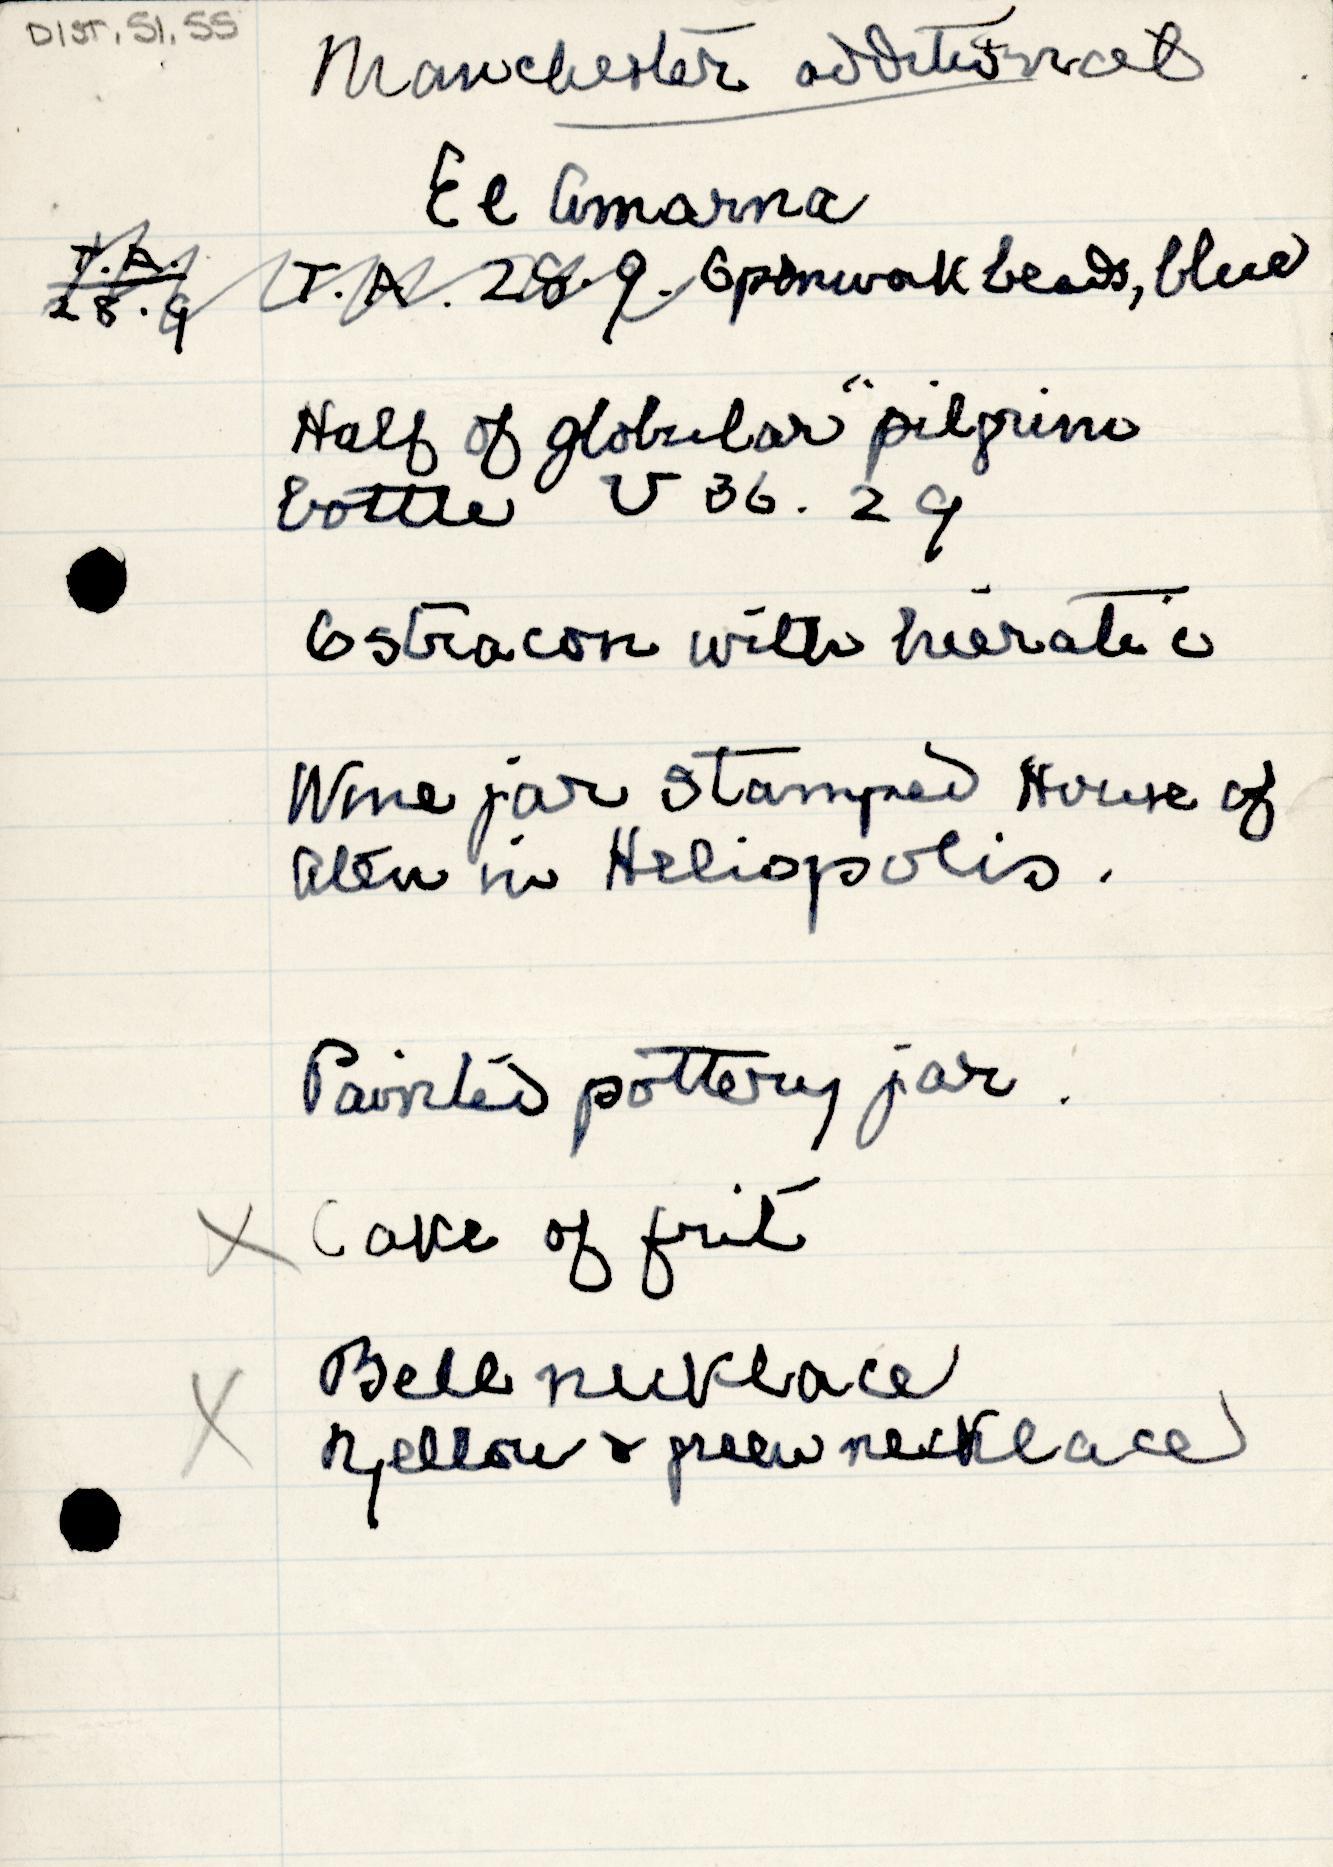 DIST. 51.55
Manchester additional
El Amarna
T.A. 28.9 T.A. 28.9. Openwork beads, blue
Half of globular "pilgrim
bottle U 36. 29
Ostracon with hieratic
Wine jar stamped House of
Aten in Heliopolis.
Painted pottery jar.
X Cake of frit
Bell necklace
X yellow & green necklace